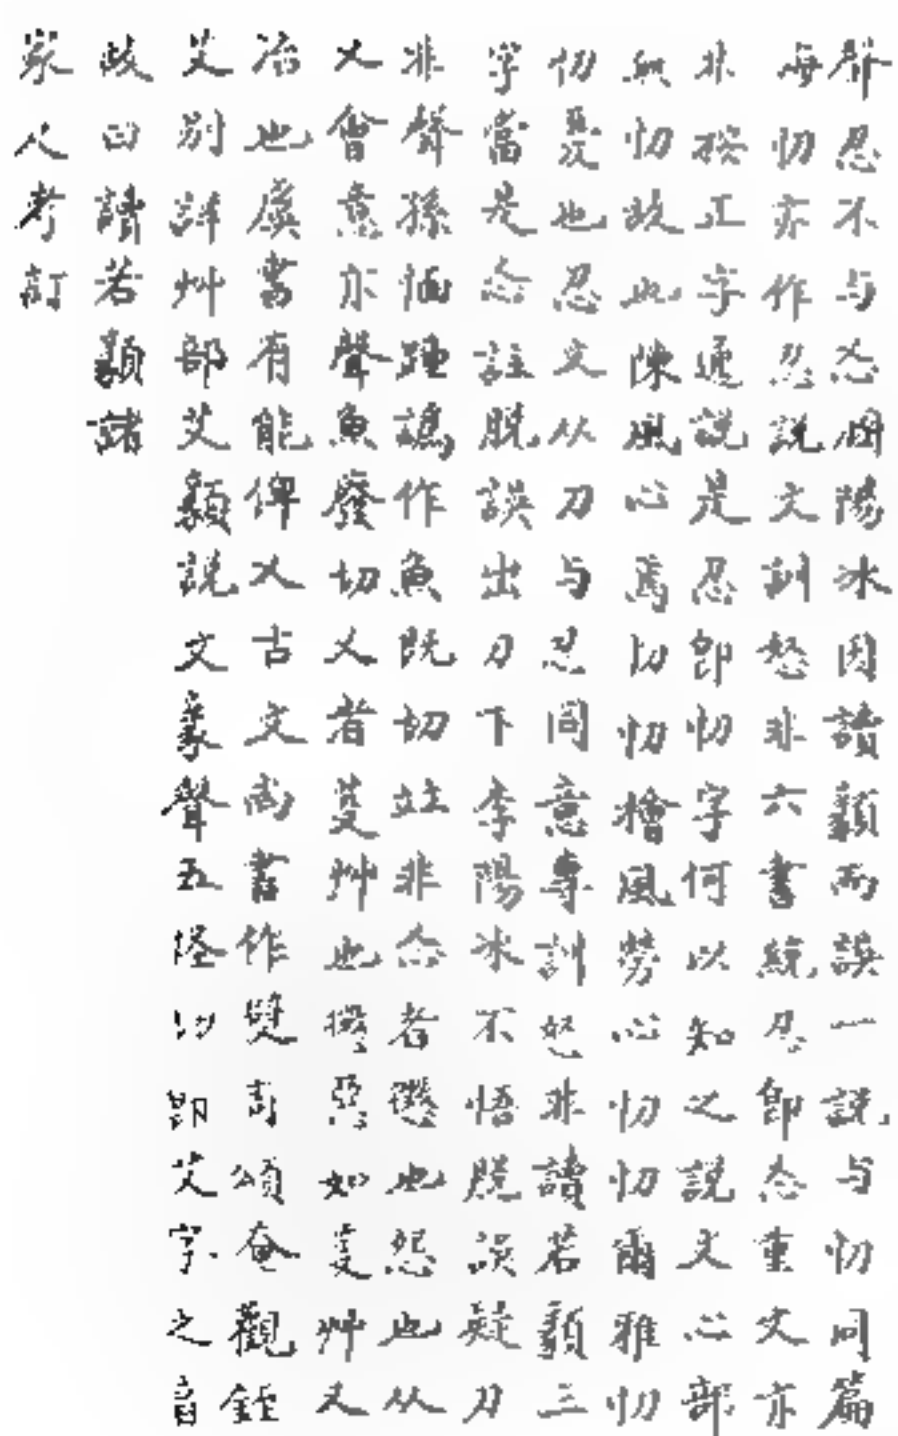 聲忍不与忞同陽冰因讀顡而誤一説与忉同篇
海切亦作忍説文訓怒非六書統忍即忞重文亦
非按工字通説是忍即忉字何以知之説文心部
無忉故也陳風心焉忉忉檜風勞心忉忉爾雅忉
忉憂也忍文从刀与忍同意專訓怒非讀若顡三
字當是忞註脱誤出刀下李陽冰不悟脱誤疑刀
非聲孫愐踵譌作魚既切竝非忞者懲也怨也从
乂會意亦聲魚廢切乂者芟艸也懲惡如芟艸乂
治也虞書有能俾乂古文尚書作嬖周頌奄觀銍
艾別詳艸部艾顡説文豪聲五怪切即艾字之音
故曰讀若顡諸
家人考訂